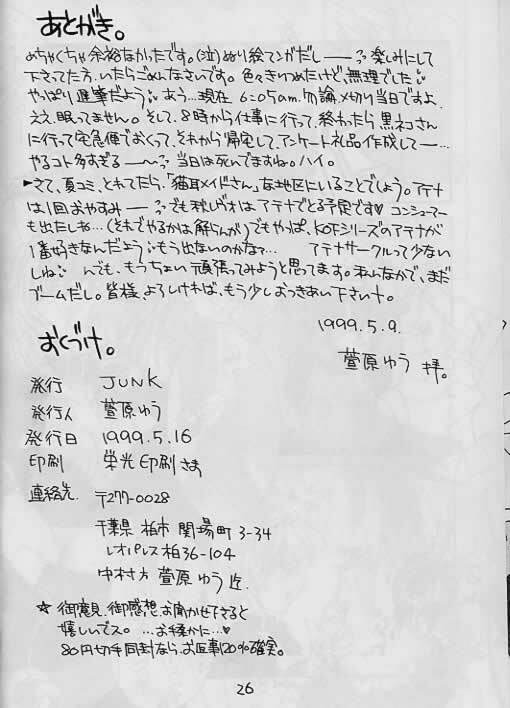 あとがき。
めちゃくちゃ余裕なかったです。(泣)ぬり絵マンガだし──楽しみにして
下さってた方、いたらごめんなさいです。色々きりつめたけど、無理でした
やっぱり遅筆だよう あう…現在 6:05am.勿論〆切り当日ですよ
ええ、眠ってません。そして、8時から仕事に行って、終わったら黒ネコさん
に行って宅急便でおくって、それから帰宅して、アンケート礼品作成して─…
やるコト多すぎる─〜 当日は死んでますね。ハイ。
►さて、夏コミ、とれてたら、「猫耳メイドさん」な地区にいることでしょう。アテナ
は1回おやすみ── でも秋レヴォはアテナでとる予定です♡ コンシューマー
も出たしね…(それでやるかは解らんが)でもやっぱ、KOFシリーズのアテナが
1番好きなんだよう もう出ないのかな?… アテナサークルって少ない
しね んでも、もうちょい頑張ってみようと思ってます。私ん中で、まだ
ブームだし。皆様、よろしければ、もう少しおつきあい下さい
1999.5.9.
萱原ゆう 拝。
おくづけ。
発行 JUNK
発行人 萱原ゆう
発行日 1999.5.16
印刷 栄光印刷さま
連絡先 〒277-0028
千葉県 柏市 関場町 3-34
レオパレス柏36-104
中村方 萱原ゆう 迄.
☆ 御意見、御感想、お聞かせ下さると
嬉しいでス。…お手柔かに…♥
80円切手同封なら、お返事120%確実。
26